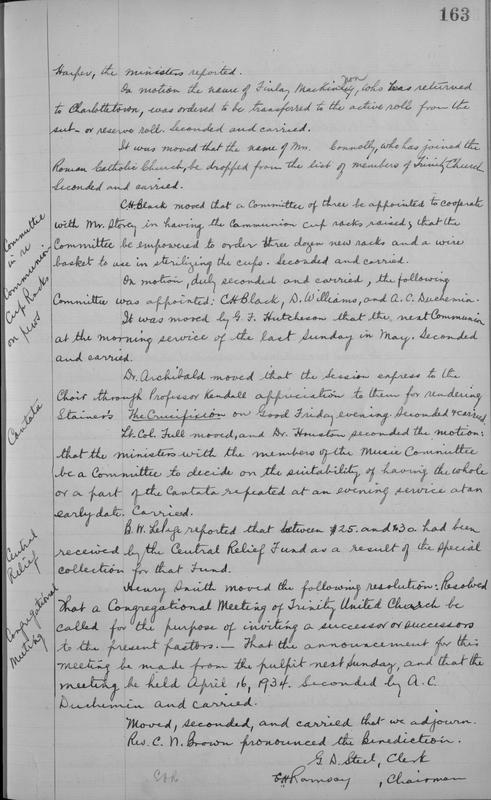 163
Harper, the ministers reported.
On motion the name of Finlay Mackinnon, who was returned
to Charlottetown, was ordered to be transferred to the active roll from the
sub- or reserve roll. Seconded and carried.
It was moved that the name of Mrs. Connolly, who has joined the
Roman Catholic Church, be dropped from the list of members of Trinity Church
Seconded and carried.
C.H. Black moved that a Committee of three be appointed to cooperate
with Mr. Storey in having the Communion cup racks raised; that the
Committee be empowered to order three dozen new racks and a wire
basket to use in sterilizing the cups. Seconded and carried.
Committee
in re
Communion
Cup Racks
on pews
On motion, duly seconded and carried, the following
Committee was appointed: C.H. Black, D. Williams, and A.C. Duchemin.
It was moved by G.F. Hutcheson that the next Communion
at the morning service of the last Sunday in May. Seconded
and carried.
Dr. Archibald moved that the Session express to the
Choir through Professor Kendall appreciation to them for rendering
Stainer's The Crucifixion on Good Friday evening. Seconded & carried.
Cantata
Lt. Col. Full moved, and Dr. Houston seconded the motion:
that the ministers with the members of the Music Committee
be a Committee to decide on the suitability of having the whole
or a part of the Cantata repeated at an evening service at an
early date. Carried.
Central
Relief
B.W. LePage reported that between $25. and $30. had been
received by the Central Relief Fund as a result of the special
collection for that Fund.
Congregational
Meeting
Henry Smith moved the following resolution: Resolved
That a Congregational Meeting of Trinity United Church be
called for the purpose of inviting a successor or successors
to the present pastors. — That the announcement for this
meeting be made from the pulpit next Sunday, and that the
meeting be held April 16, 1934. Seconded by A.C.
Duchemin and carried.
Moved, seconded, and carried that we adjourn.
Rev. C. N. Brown pronounced the Benediction.
G D Steel, Clerk
EH Ramsay, Chairman